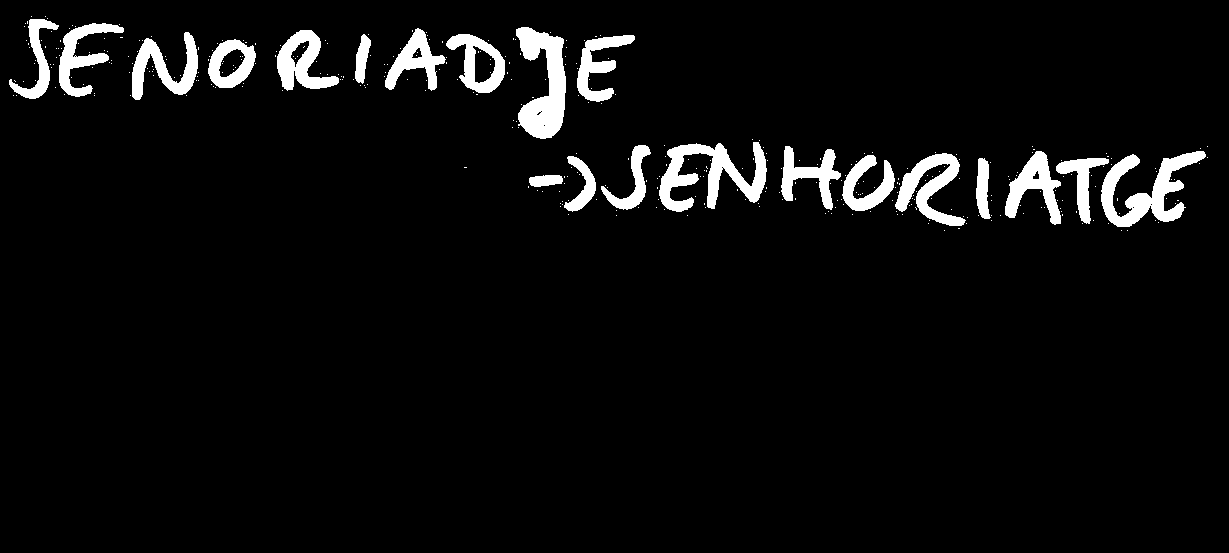 SENORIADJE
->SENHORIATGE